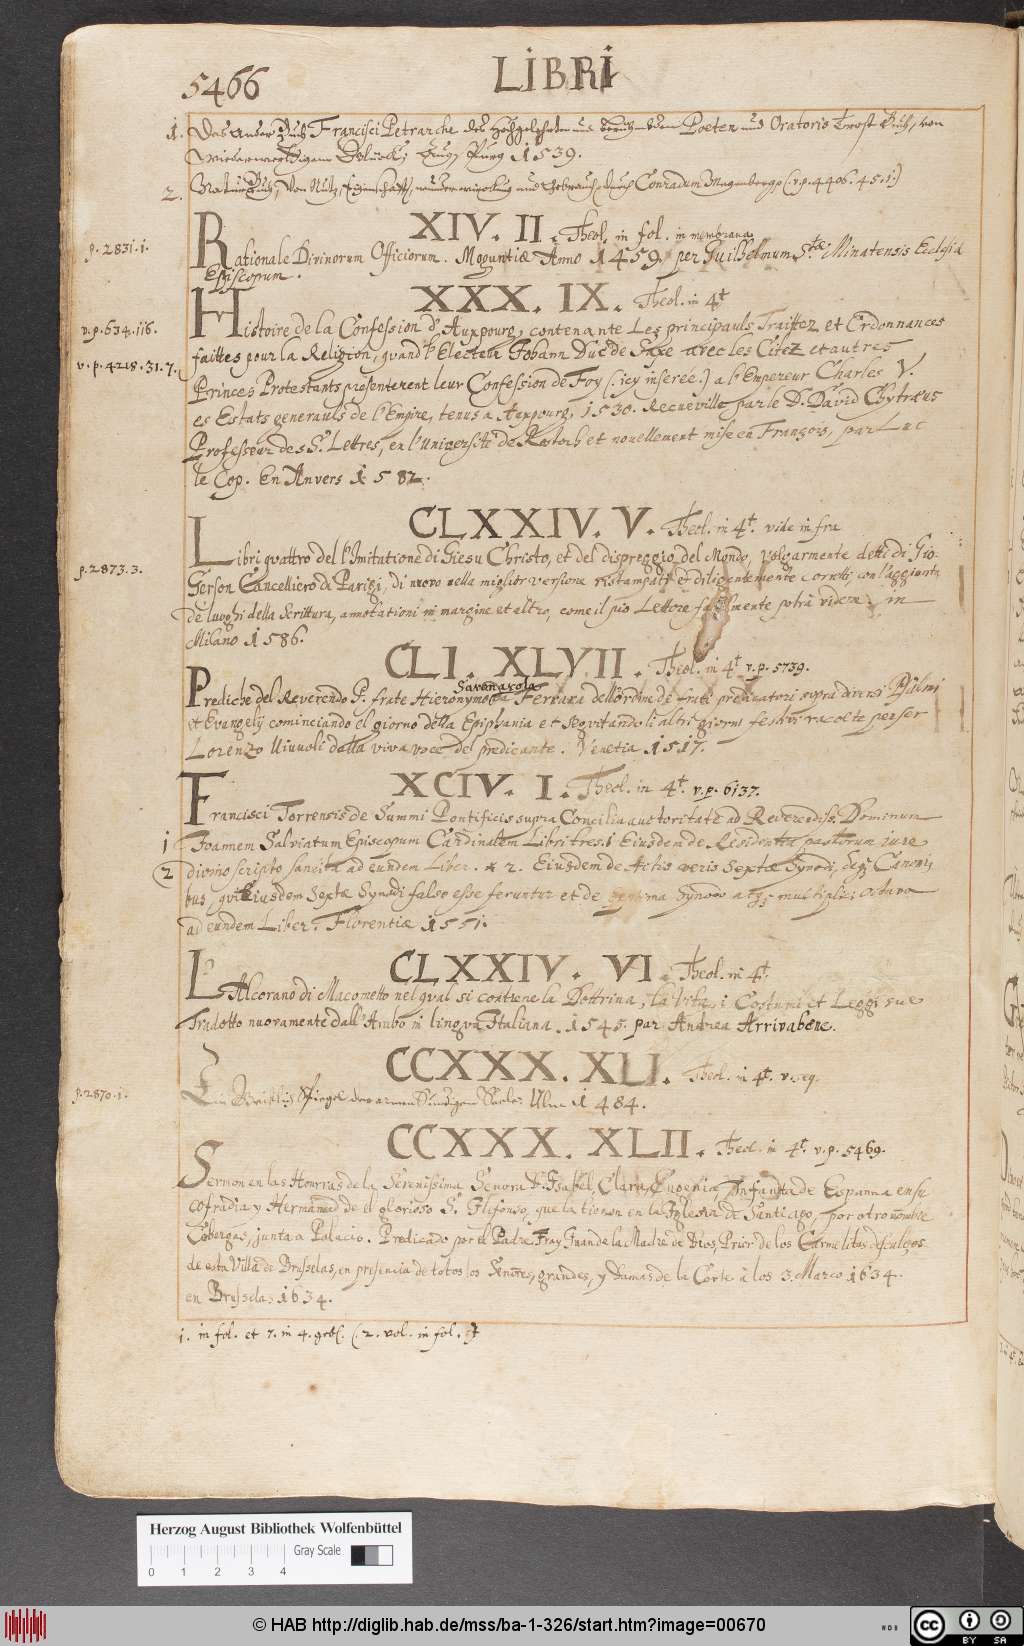 5466
LIBRI
1. Das Ander Buch Francisci Petrarche des Hochgelehrten und Poeten und Oratoris Trost Buch, von
1539.
2. Natur Buch, Von Nutz, Eigenschafft, und Gebrauch, durch Conradum Magenbergo (v.p. 4406. 45. 1.)
XIV. II. Theol. in fol. in membrana
p. 2831. 1.
Rationale Divinorum Officiorum. Moguntiæ Anno 1459. per Guilhelmum Stæ Minatensis Ecclesiæ
Episcopum.
XXX. IX. Theol. in 4t
v. p. 634. 116.
Histoire de la Confession d'Auxpourg, contenante Les principauls Traittez et Ordonnances
v. p. 4218. 31. 7.
faittes pour la Religion, quand l'Electeur Johann Duc de Saxe avec les Citez et autres
Princes Protestants presenterent leur Confession de Foy (: icy inserée :) a l'Empereur Charles V.
es Estats generauls de l'Empire, tenus a Auxpourg, 1530. Recueville par le D. David Chytræus
Professeur des S. Lettres, en l'Université de Rostoch et nouellement mise en François, par Luc
le Cop. En Anvers 1582.
CLXXIV. V. Theol. in 4t. vide infra
p. 2873. 3.
Libri quattro del l'Imitatione di Giesu Christo, et del dispreggio del Mondo, volgarmente detti di Gio
Gerson Cancelliero di Parigi, di nuovo nella miglior versione Ristampati et diligentemente corretti, con l'aggiunta
de luoghi della Scrittura, annotationi in margine et altro, come il pio Lettore facilmente potrà videre in
Milano 1586.
CLI. XLVII. Theol. in 4t v. p. 5739.
Savanarola
Prediche del Reverendo P. frate Hieronymo da Ferrara dell'ordine de frati predicatori sopra diversi Psalmi
et Evangelij cominciando el giorno della Epiphania et seguitando li altri giorni festivi racolte per ser
Lorenzo Viuuoli dalla viva voce del predicante. Venetia 1517.
XCIV. I. Theol. in 4t v. p. 6137.
Francisci Torrensis de Summi Pontificis supra Concilia auctoritate ad Reverendiss. Dominum
1 Joannem Salviatum Episcopum Cardinalem Libri tres. 1 Eiusdem de Residentia pastorum iure
2 divino scripto sancita ad eundem Liber. * 2. Eiusdem de Actis veris Sextæ Synodi, deq; Canoni=
bus, qui Eiusdem Sextæ Synodi falso esse feruntur et de septima Synodo atq; multiplici octava
ad eundem Liber. Florentiæ 1551.
CLXXIV. VI. Theol. in 4t.
L'Alcorano di Macometto nel qual si contiene la Dottrina, la Vita, i Costumi et Leggi sue
Tradotto nuovamente dall'Arabo in lingua Italiana. 1545. par Andrea Arrivabene.
CCXXX. XLI. Theol. in 4t. v. seq.
p. 2870. 1.
Ein Spiegel der armen Sündigen Seele. Ulm 1484.
CCXXX. XLII. Theol. in 4t. v. p. 5469.
Sermon en las Honrras de la Serenissima Senora D. Isabel, Clara, Eugenia, Infanta de Espanna en su
Cofradia y Hermandad de el glorioso S. Ilefonso, que la tienen en la Iglesia de Santiago, por otro nombre
Cobergas, junto a Palacio. Predicado por el Padre Fray Juan de la Madre de Dios, Prior de los Carmelitas descalços
de esta Villa de Brusselas, en presencia de todos los Senores, grandes, y Damas de la Corte à los 3. Março 1634.
en Brusselas 1634.
1. in fol. et 7. in 4. geb. (2. vol. in fol.
Herzog August Bibliothek Wolfenbüttel
Gray Scale
0 1 2 3 4
© HAB http://diglib.hab.de/mss/ba-1-326/start.htm?image=00670
cc BY SA